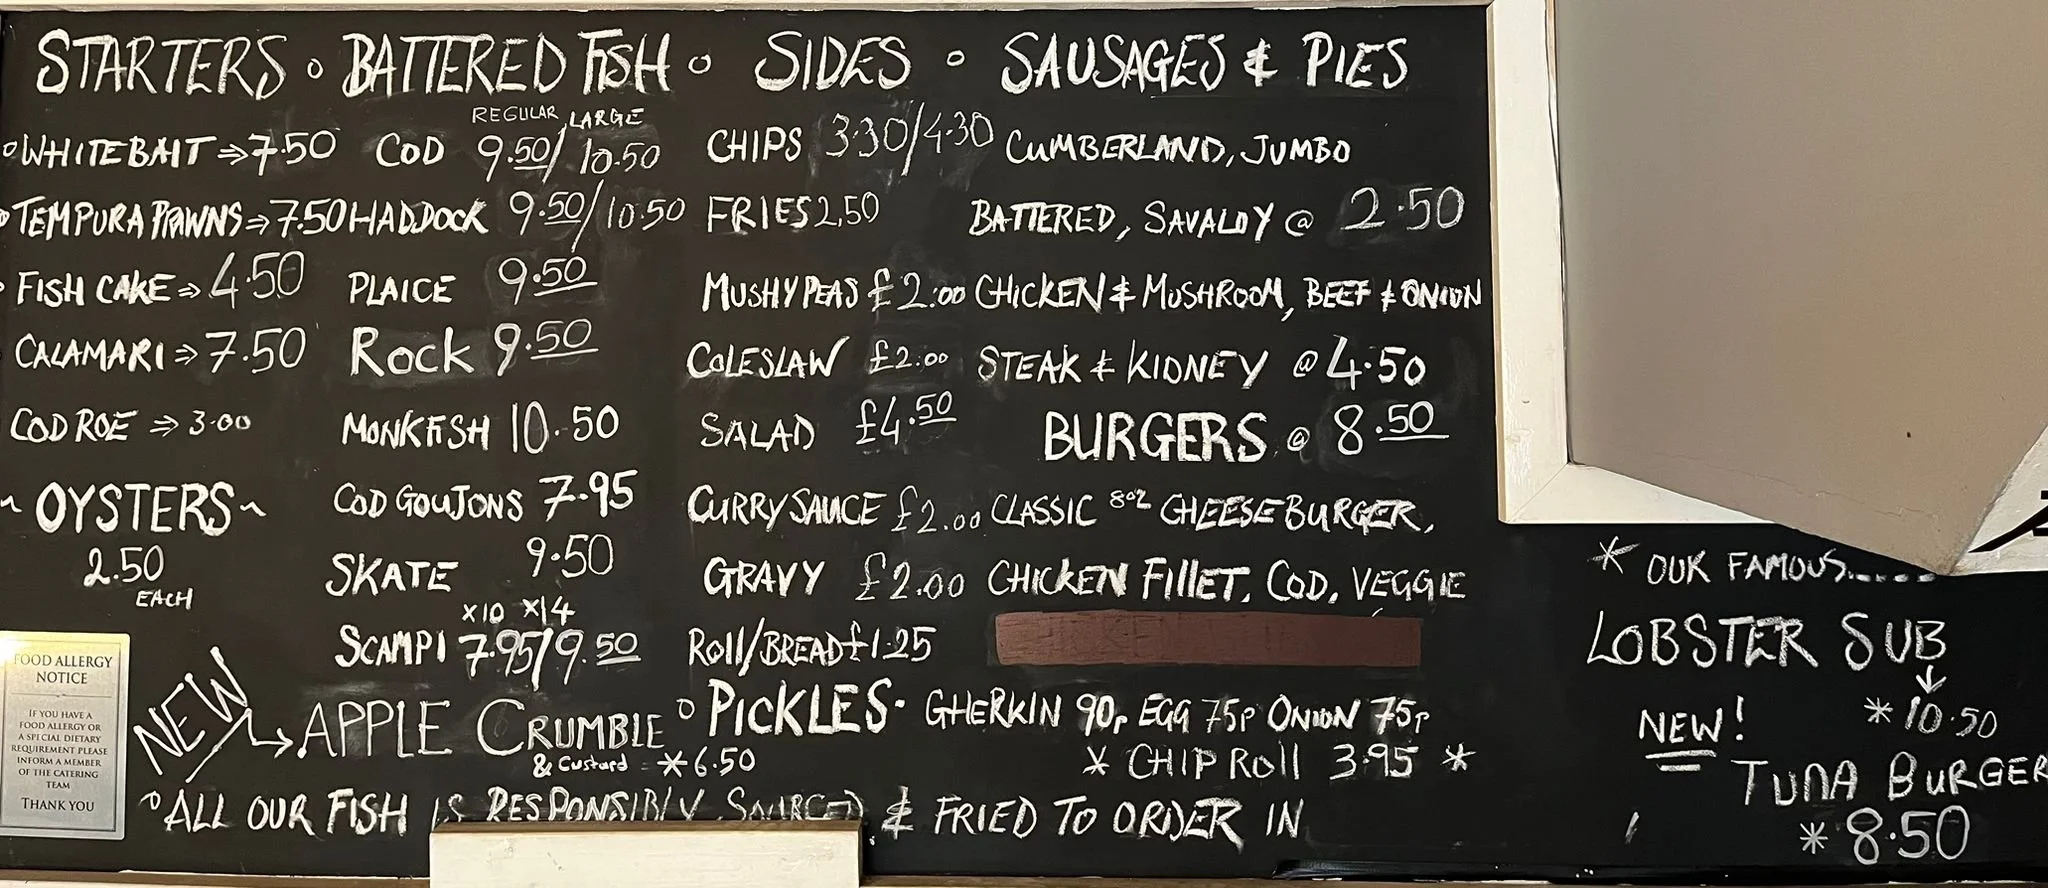 STARTERS ∘ BATTERED FISH ∘ SIDES ∘ SAUSAGES & PIES
WHITEBAIT ⇒ 7.50
TEMPURA PRAWNS ⇒ 7.50
FISH CAKE ⇒ 4.50
CALAMARI ⇒ 7.50
COD ROE ⇒ 3.00
~ OYSTERS ~
2.50
EACH
REGULAR, LARGE
COD 9.50/10.50
HADDOCK 9.50/10.50
PLAICE 9.50
ROCK 9.50
MONKFISH 10.50
COD GOUJONS 7.95
SKATE 9.50
X10 X14
SCAMPI 7.95/9.50
CHIPS 3.30/4.30
FRIES 2.50
MUSHY PEAS £2.00
COLESLAW £2.00
SALAD £4.50
CURRY SAUCE £2.00
GRAVY £2.00
ROLL/BREAD £1.25
CUMBERLAND, JUMBO
BATTERED, SAVALOY @ 2.50
CHICKEN & MUSHROOM, BEEF & ONION
STEAK & KIDNEY @ 4.50
BURGERS @ 8.50
CLASSIC 8oz CHEESEBURGER,
CHICKEN FILLET, COD, VEGGIE
∘ PICKLES · GHERKIN 90p EGG 75p ONION 75p
* CHIP ROLL 3.95 *
NEW → APPLE CRUMBLE
& Custard *6.50
ALL OUR FISH IS RESPONSIBLY SOURCED & FRIED TO ORDER IN
* OUR FAMOUS.....
LOBSTER SUB
* 10.50
NEW!
TUNA BURGER
* 8.50
FOOD ALLERGY
NOTICE
IF YOU HAVE A
FOOD ALLERGY OR
A SPECIAL DIETARY
REQUIREMENT PLEASE
INFORM A MEMBER
OF THE CATERING
TEAM
THANK YOU